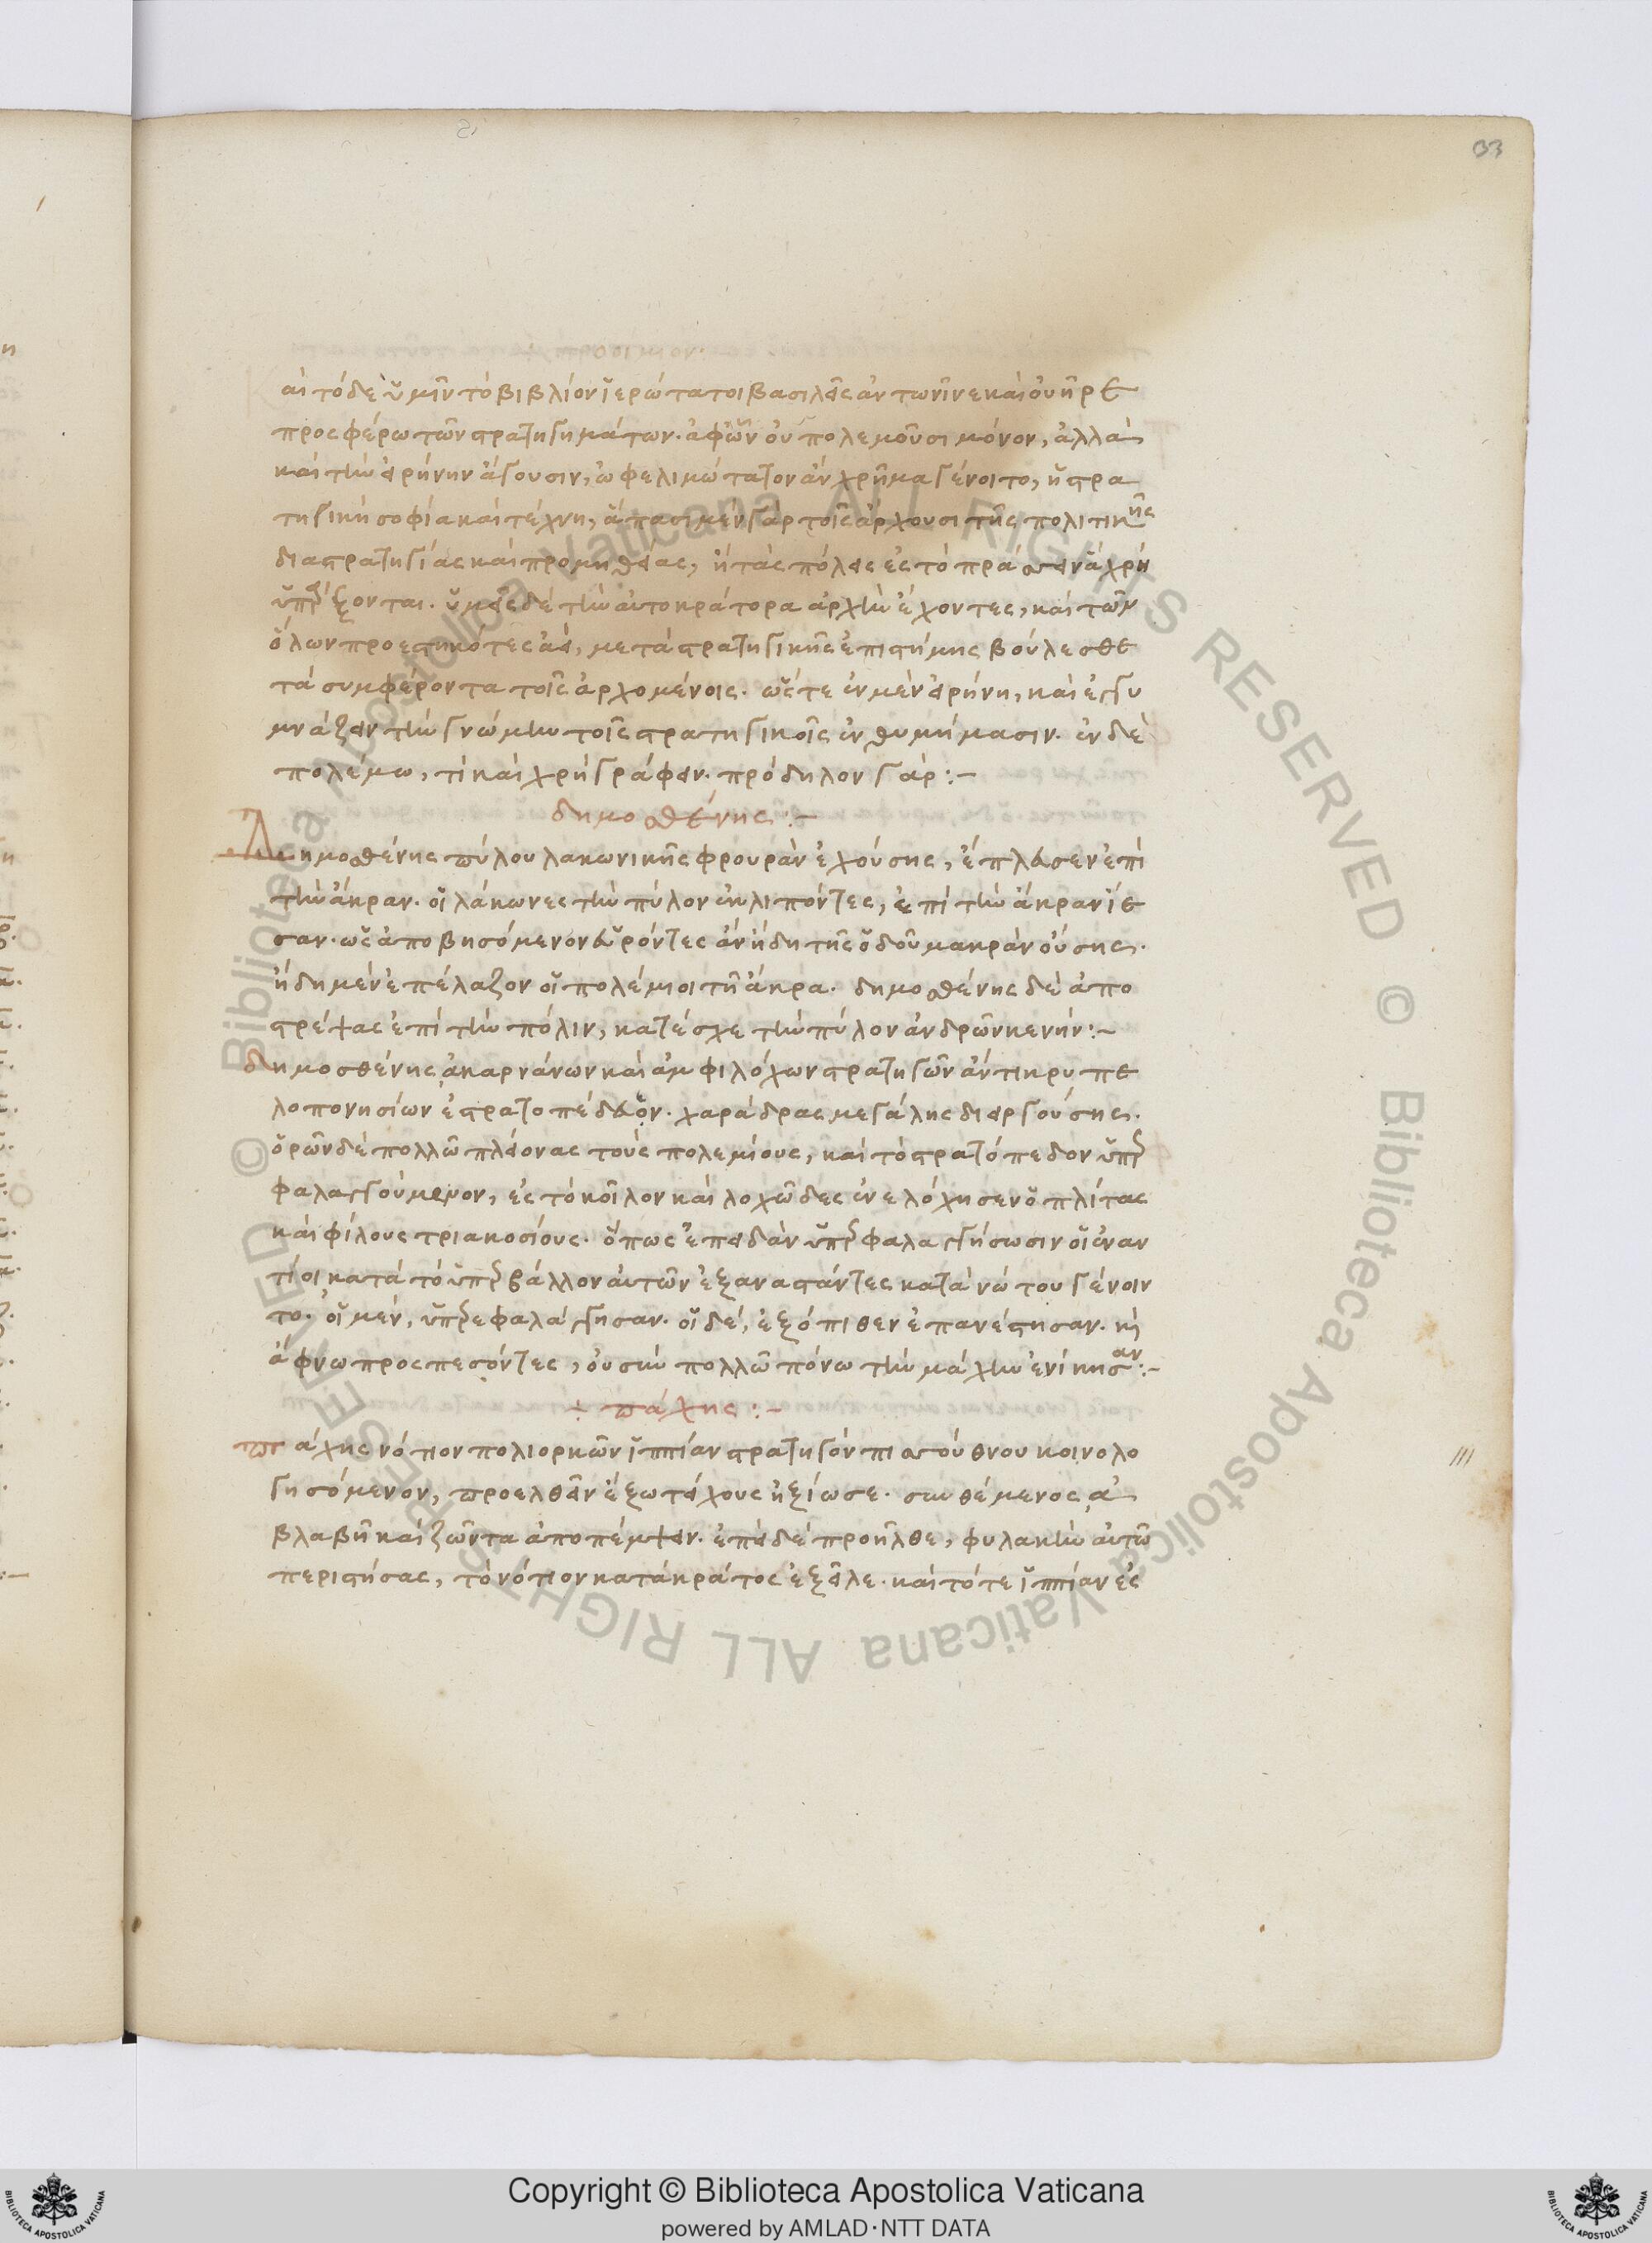 33
αὶ τόδε ὑμῖν τὸ βιβλίον ἱερώτατοι βασιλεῖς ἀντωνῖνε καὶ οὐῆρε
προσφέρω τῶν στρατηγημάτων. ἀφ ὧν οὐ πολεμοῦσι μόνον, ἀλλὰ
καὶ τὴν εἰρήνην ἄγουσιν, ὠφελιμώτατον ἂν χρῆμα γένοιτο, ἡ στρα
τηγικὴ σοφία καὶ τέχνη, ἅπασι μὲν γὰρ τοῖς ἄρχουσι τῆς πολιτικῆς
δια στρατηγίας καὶ προμηθείας, ἢ τὰς πόλεις ἐς τὸ πράσσειν ἃ χρὴ
ὑπερέξονται. ὑμεῖς δὲ τὴν αὐτοκράτορα ἀρχὴν ἔχοντες, καὶ τῶν
ὅλων προεστηκότες ἀεὶ, μετὰ στρατηγικῆς ἐπιστήμης βούλεσθε
τὰ συμφέροντα τοῖς ἀρχομένοις. ὥστε ἐν μὲν εἰρήνη, καὶ ἐγγυ
μνάζειν τὴν γνώμην τοῖς στρατηγικοῖς ἐνθυμήμασιν. ἐν δὲ
πολέμω, τί καὶ χρὴ γράφειν. πρόδηλον γάρ:-
δημοσθένης:-
Δημοσθένης πύλου λακωνικῆς φρουρὰν ἐχούσης, ἔπλευσεν ἐπὶ
τὴν ἄκραν. οἱ λάκωνες τὴν πύλον ἐκλιπόντες, ἐπὶ τὴν ἄκραν ἵε
σαν. ὡς ἀποβησόμενον εὑρόντες ἂν ἤδη τῆς ὁδοῦ μακρὰν οὔσης.
ἤδη μὲν ἐπέλαζον οἱ πολέμιοι τῆ ἄκρα. δημοσθένης δὲ ἀπο
στρέψας ἐπὶ τὴν πόλιν, κατέσχε τὴν πύλον ἀνδρῶν κενήν:-
δημοσθένης ἀκαρνάνων καὶ ἀμφιλόχων στρατηγῶν ἀντικρὺ πε
λοπονησίων ἐστρατοπέδευον. χαράδρας μεγάλης διειργούσης.
ὁρῶν δὲ πολλῶ πλείονας τοὺς πολεμίους, καὶ τὸ στρατόπεδον ὑπερ
φαλαγγούμενον, ἐς τὸ κοῖλον καὶ λοχῶδες ἐνελόχησεν ὁπλίτας
καὶ φίλους τριακοσίους. ὅπως ἐπειδὰν ὑπερφαλαγγήσωσιν οἱ ἐναν
τίοι κατὰ τὸ ὑπερβάλλον αὐτῶν ἐξαναστάντες κατὰ νώτου γένοιν
το. οἱ μὲν, ὑπερεφαλάγγησαν. οἱ δὲ, ἐξόπιθεν ἐπανέστησαν. καὶ
ἄφνω προσπεσόντες, οὐ σὺν πολλῶ πόνω τὴν μάχην ἐνίκησαν:-
πάχης:-
πάχης νότιον πολιορκῶν ἱππίαν στρατηγὸν πισσούθνου κοινολο
γησόμενον, προελθεῖν ἔξω τείχους ἠξίωσε. συνθέμενος ἀ
βλαβῆ καὶ ζῶντα ἀποπέμψειν. ἐπεὶ δὲ προῆλθε, φυλακὴν αὐτῶ
περιστήσας, τὸ νότιον κατὰ κράτος ἐξεῖλε. καὶ τότε ἱππίαν ἐς
Copyright © Biblioteca Apostolica Vaticana
powered by AMLAD·NTT DATA